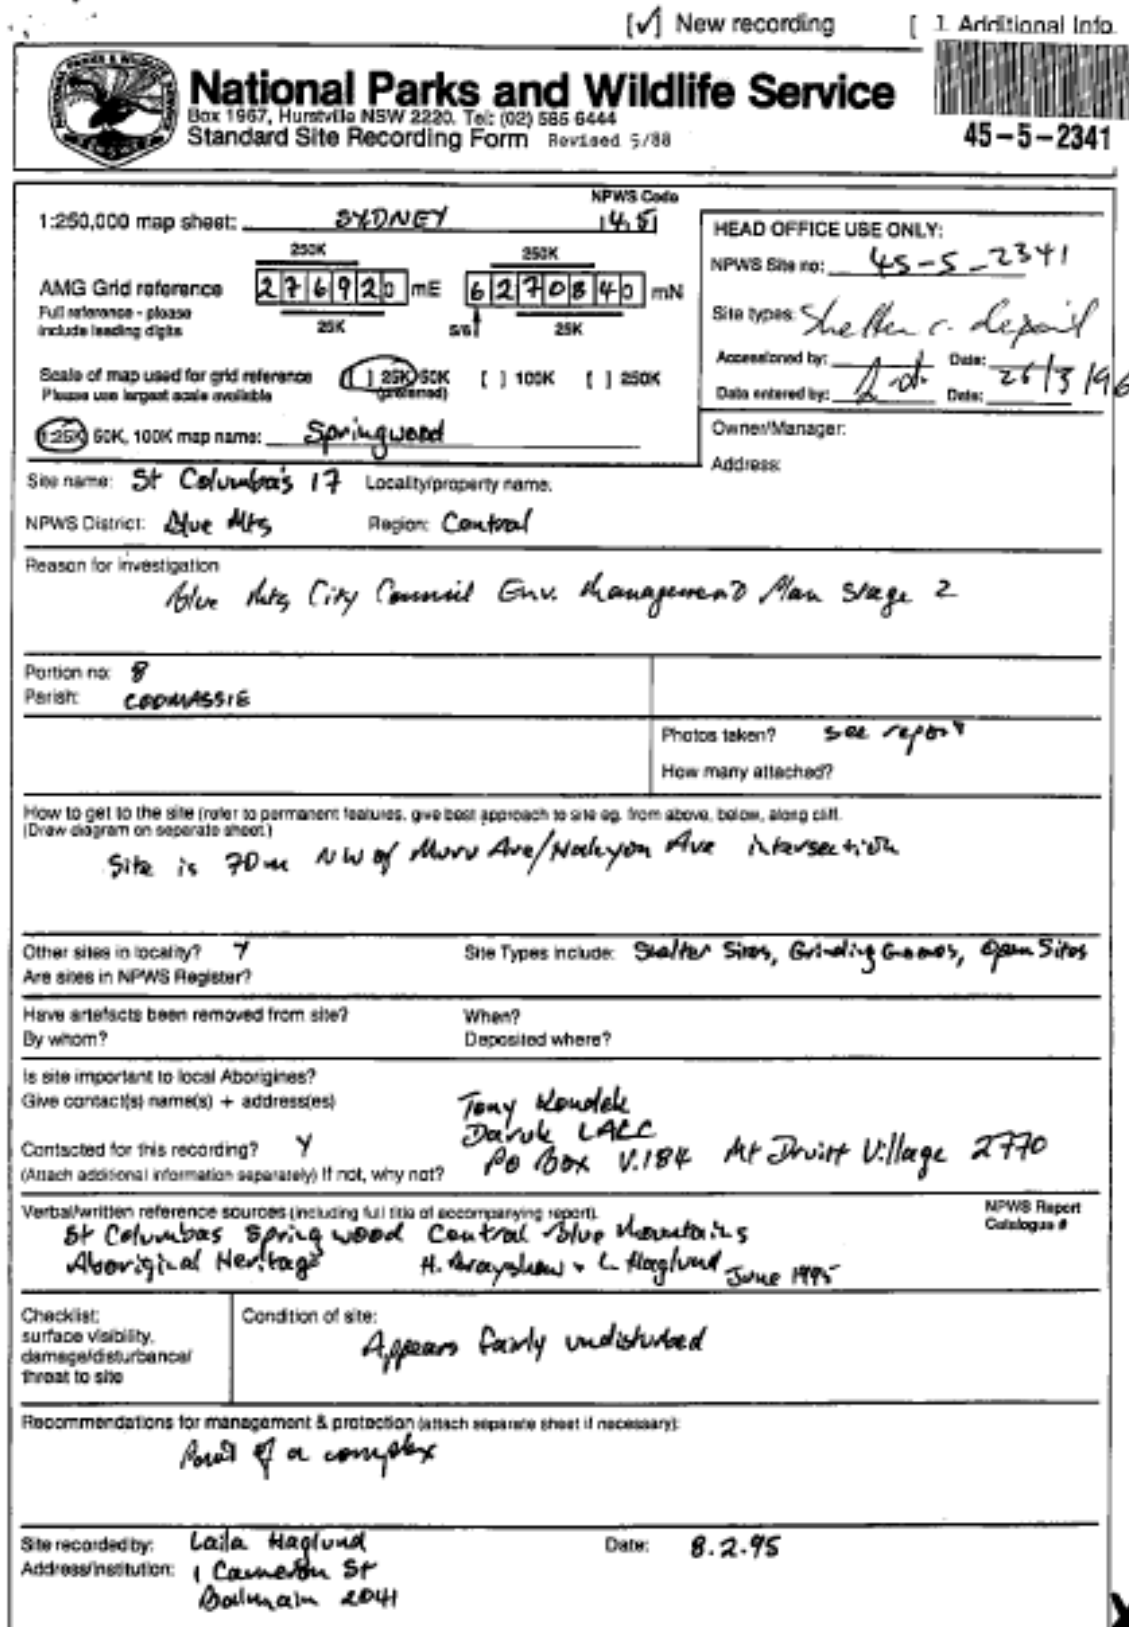 [✓] New recording [ ] Additional Info.
National Parks and Wildlife Service
Box 1967, Hurstville NSW 2220. Tel: (02) 585 6444
Standard Site Recording Form Revised 5/88
45-5-2341
NPWS Code
1:250,000 map sheet: SYDNEY 14.51
250K 250K
AMG Grid reference 276920 mE 6270840 mN
Full reference - please
include leading digits
25K 5/6 25K
Scale of map used for grid reference [ ] 25K, 50K [ ] 100K [ ] 250K
Please use largest scale available (preferred)
1:25K, 50K, 100K map name: Springwood
HEAD OFFICE USE ONLY:
NPWS Site no: 45-5-2341
Site types: Shelter c. deposit
Accessioned by: Date:
Data entered by: Date: 26/3/96
Owner/Manager:
Address:
Site name: St Columba's 17 Locality/property name:
NPWS District: Blue Mts Region: Central
Reason for investigation
Blue Mts City Council Env. Management Plan Stage 2
Portion no: 8
Parish: COOMASSIE
Photos taken? see report
How many attached?
How to get to the site (refer to permanent features, give best approach to site eg. from above, below, along cliff.
(Draw diagram on separate sheet.)
Site is 70m NW of Ave/ Ave intersection
Other sites in locality? Y Site Types include: Shelter Sites, Grinding Grooves, Open Sites
Are sites in NPWS Register?
Have artefacts been removed from site? When?
By whom? Deposited where?
Is site important to local Aborigines?
Give contact(s) name(s) + address(es)
Tony Kondek
Daruk LALC
Contacted for this recording? Y PO Box V.184 Mt Druitt Village 2770
(Attach additional information separately) If not, why not?
Verbal/written reference sources (including full title of accompanying report). NPWS Report
Catalogue #
St Columbas Springwood Central Blue Mountains
Aboriginal Heritage H. Brayshaw + L Haglund June 1995
Checklist:
surface visibility,
damage/disturbance/
threat to site
Condition of site:
Appears fairly undisturbed
Recommendations for management & protection (attach separate sheet if necessary):
Part of a complex
Site recorded by: Laila Haglund Date: 8.2.95
Address/institution: 1 Cameron St
Balmain 2041